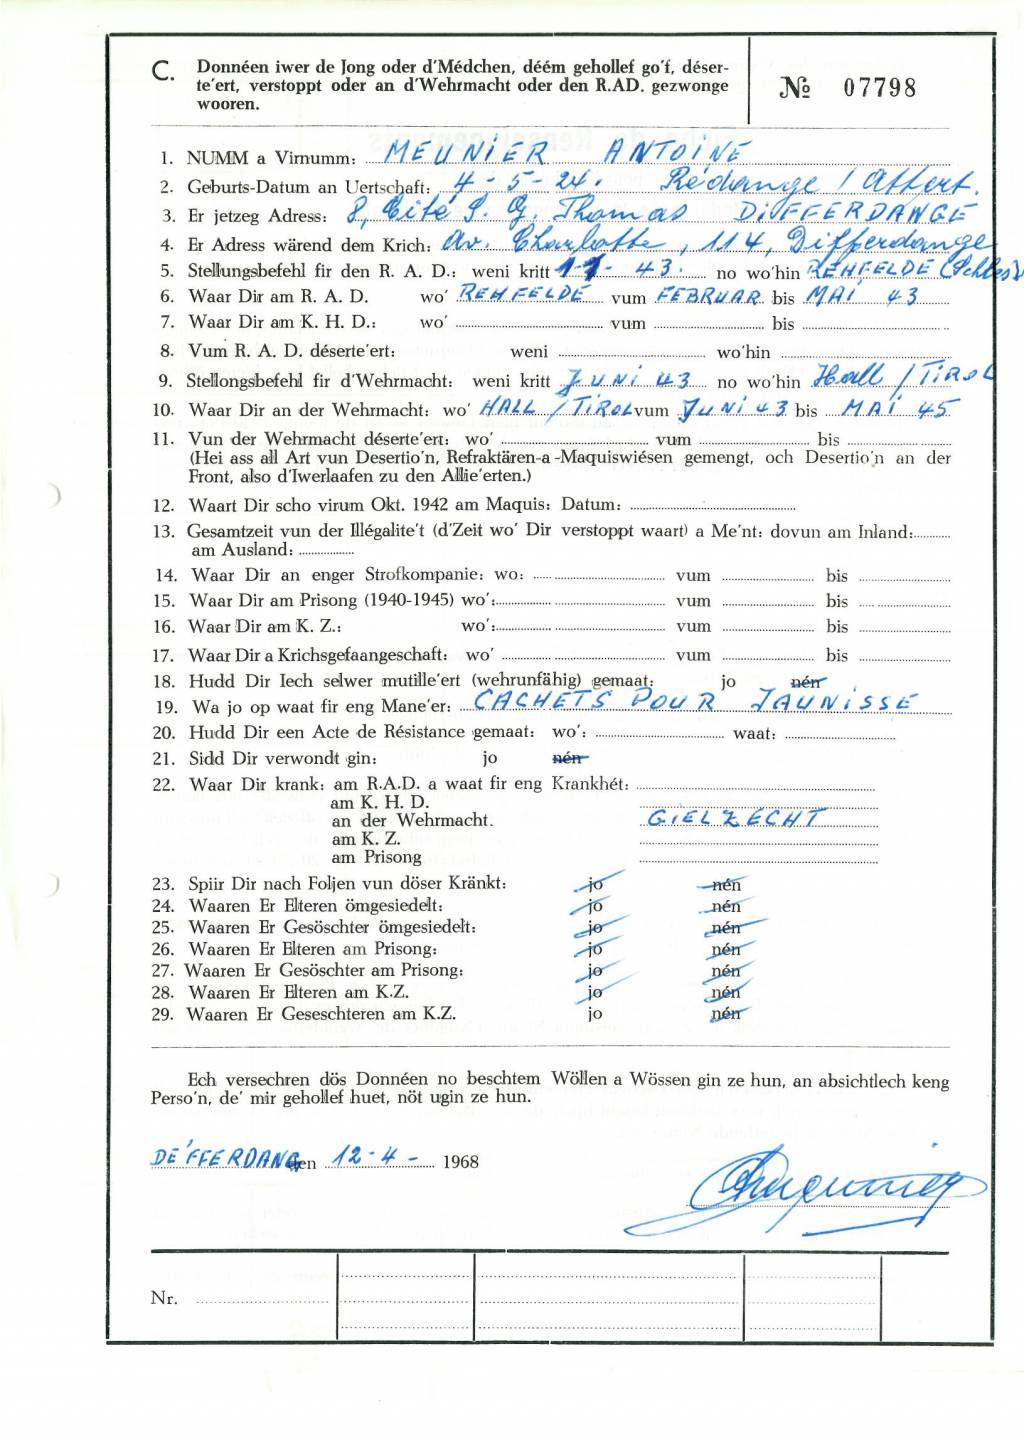 C. Donnéen iwer de Jong oder d'Médchen, déém gehollef go'f, déser-
te'ert, verstoppt oder an d'Wehrmacht oder den R.AD. gezwonge
wooren.
№ 07798
1. NUMM a Virnumm: MEUNIER ANTOINE
2. Geburts-Datum an Uertschaft: 4-5-24. Rédange / Attert.
3. Er jetzeg Adress: 8, Cité P. G. Thomas DIFFERDANGE
4. Er Adress wärend dem Krich: Av. Charlotte, 114, Differdange
5. Stellungsbefehl fir den R. A. D.: weni kritt 43. no wo'hin REHFELDE
6. Waar Dir am R. A. D. wo' REHFELDE vum FEBRUAR bis MAI 43
7. Waar Dir am K. H. D.: wo' vum bis
8. Vum R. A. D. déserte'ert: weni wo'hin
9. Stellongsbefehl fir d'Wehrmacht: weni kritt JUNI 43 no wo'hin Hall / TIROL
10. Waar Dir an der Wehrmacht: wo' HALL / TIROL vum JUNI 43 bis MAI 45
11. Vun der Wehrmacht déserte'ert: wo' vum bis
(Hei ass all Art vun Desertio'n, Refraktären-a-Maquiswiésen gemengt, och Desertio'n an der
Front, also d'Iwerlaafen zu den Allie'erten.)
12. Waart Dir scho virum Okt. 1942 am Maquis: Datum:
13. Gesamtzeit vun der Illégalite't (d'Zeit wo' Dir verstoppt waart) a Me'nt: dovun am Inland:
am Ausland:
14. Waar Dir an enger Strofkompanie: wo: vum bis
15. Waar Dir am Prisong (1940-1945) wo': vum bis
16. Waar Dir am K. Z.: wo': vum bis
17. Waar Dir a Krichsgefaangeschaft: wo' vum bis
18. Hudd Dir Iech selwer mutille'ert (wehrunfähig) gemaat: jo nén
19. Wa jo op waat fir eng Mane'er: CACHETS POUR JAUNISSE
20. Hudd Dir een Acte de Résistance gemaat: wo': waat:
21. Sidd Dir verwondt gin: jo nén
22. Waar Dir krank: am R.A.D. a waat fir eng Krankhét:
am K. H. D.
an der Wehrmacht. GIELZECHT
am K. Z.
am Prisong
23. Spiir Dir nach Foljen vun döser Kränkt: jo nén
24. Waaren Er Elteren ömgesiedelt: jo nén
25. Waaren Er Gesöschter ömgesiedelt: jo nén
26. Waaren Er Elteren am Prisong: jo nén
27. Waaren Er Gesöschter am Prisong: jo nén
28. Waaren Er Elteren am K.Z. jo nén
29. Waaren Er Geseschteren am K.Z. jo nén
Ech versechren dös Donnéen no beschtem Wöllen a Wössen gin ze hun, an absichtlech keng
Perso'n, de' mir gehollef huet, nöt ugin ze hun.
DE'FFERDANG den 12-4- 1968
Nr.